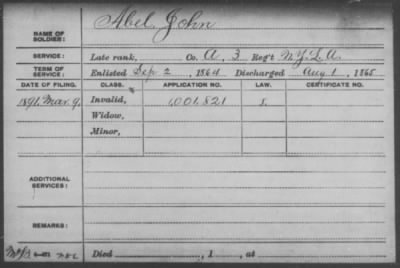 Abel, John
NAME OF SOLDIER:
SERVICE: Late rank, Co. A, 3 Reg't N.Y.L.A.
TERM OF SERVICE: Enlisted Sep 2, 1864 Discharged Aug 1, 1865
DATE OF FILING. CLASS. APPLICATION NO. LAW. CERTIFICATE NO.
1891, Mar. 9. Invalid, 1,001,821
Widow,
Minor,
ADDITIONAL SERVICES:
REMARKS:
Died , 1 , at